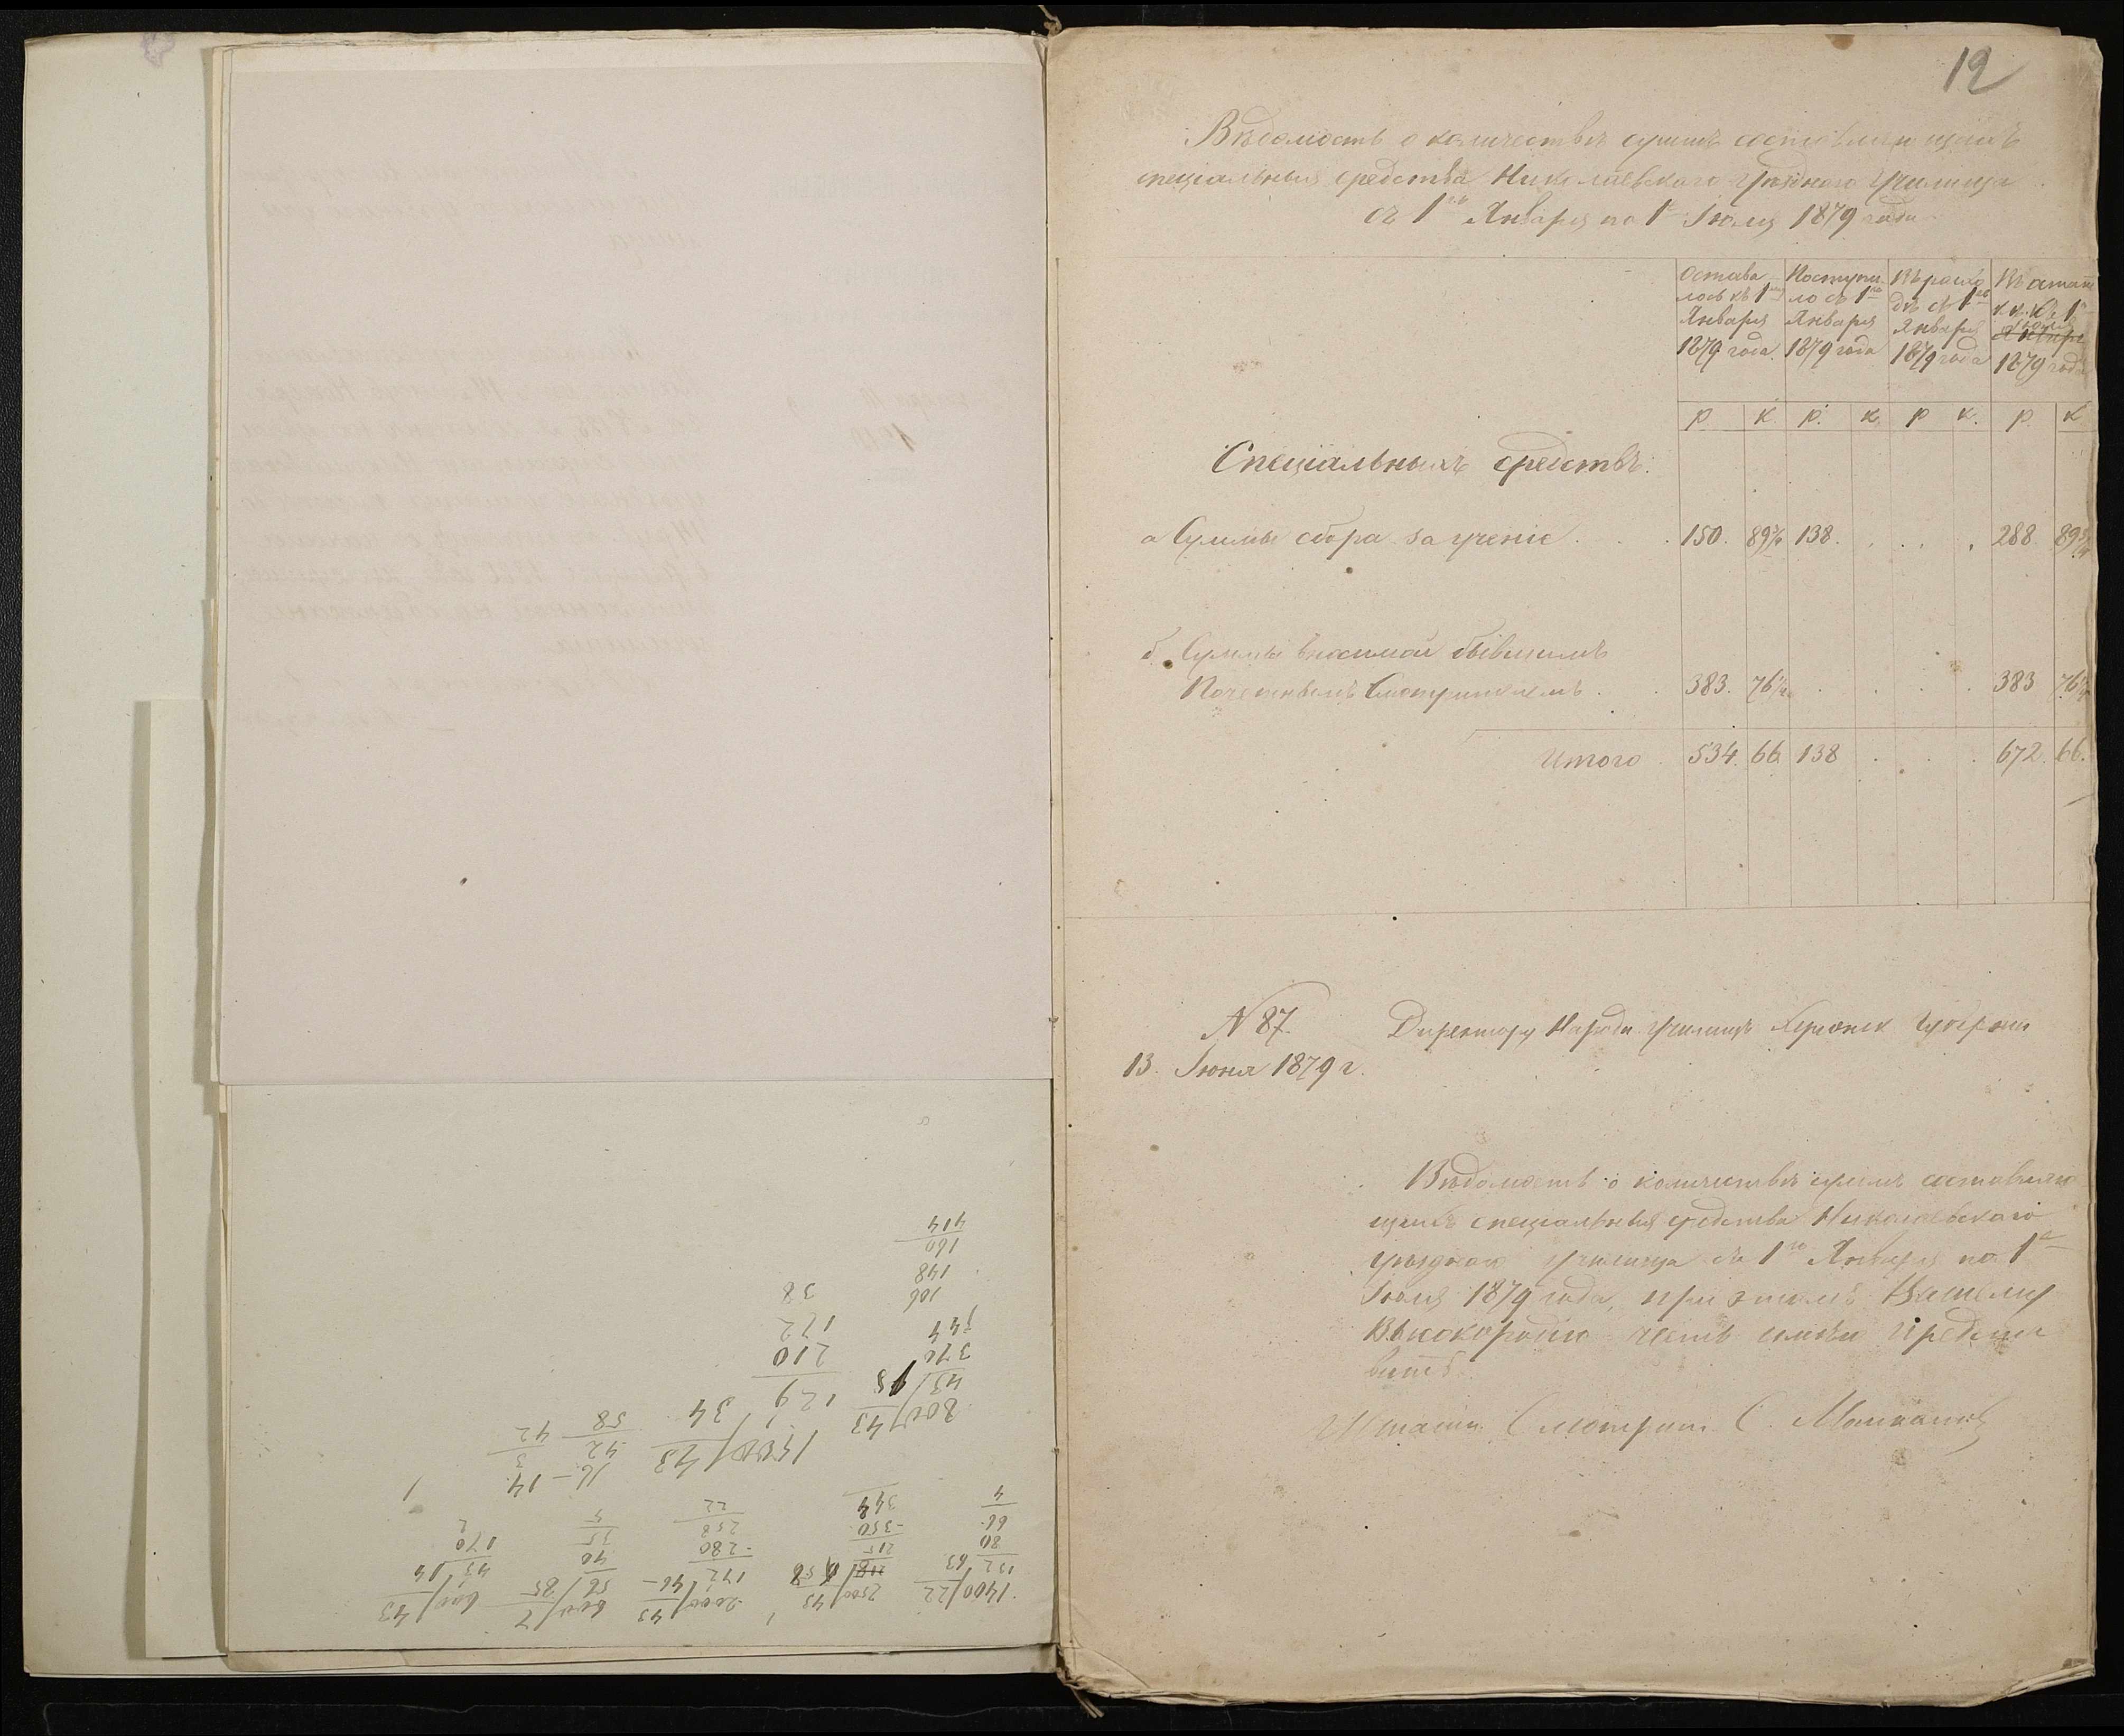 12
Вѣдомость о количествѣ суммъ составляющихъ
спеціальныя средства Николаевскаго Уѣзднаго Училища
съ 1го Января по 1е Іюля 1879 года
Остава
лось къ 1му
Января
1879 года.
Поступи
ло съ 1го
Января
1879 года
Въ расхо
дѣ съ 1го
Января
1879 года
Въ остат
къ 1
Іюля
1879 года
р к р. к р к. р. к
Спеціальныхъ средствъ:
а Суммы сбора за ученіе . . . 150. 89 138. . . . . 288. 89
б. Суммы вносимой бывшимъ
Почетнымъ Смотрителемъ . . 383. 76½ . . . . 383 76½
Итого 534. 66 138 . . . 672. 66.
N 87.
13. Іюня 1879 г.
Директору Народн. Училищъ Херсонск Губерніи
Вѣдомость о количествѣ суммъ составляю
щихъ спеціальныя средства Николаевскаго
уѣзднаго училища съ 1го Января по 1е
Іюля 1879 года, при этомъ Вашему
Высокородію честь имѣю предста
вить.
Штатн. Смотрит. С.
1400/22
132 63
80
66
4
2500/43
215 58
350
344
2000/43
172 46
280
258
22
600/7
56/85
40
35
5
600/43
43/14
170
2
16-14
42 3
58 42
1500/43
129 34
210
172
38
800/43
43/18
370
344
106
148
160
414